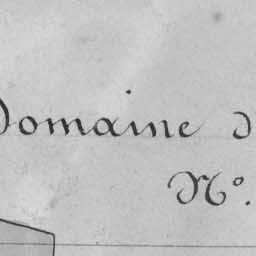 Domaine d
N°.